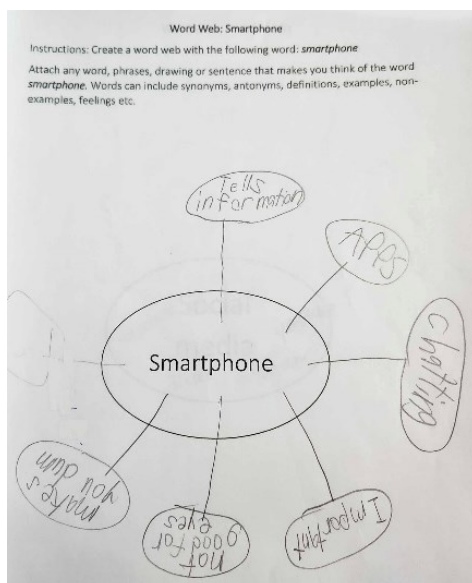 Word Web: Smartphone
Instructions: Create a word web with the following word: smartphone
Attach any word, phrases, drawing or sentence that makes you think of the word
smartphone. Words can include synonyms, antonyms, definitions, examples, non-
examples, feelings etc.
Tells
information
APPS
chatting
Smartphone
Important
not
good for
eyes
makes
you dum